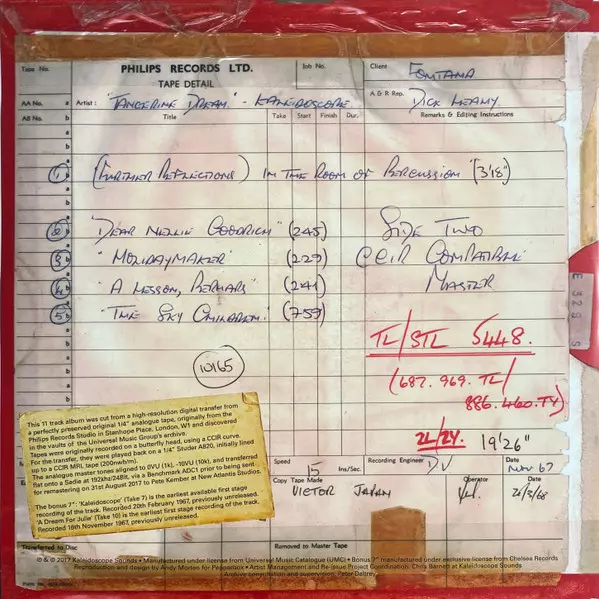 Tape No. PHILIPS RECORDS LTD. Job No. Client FONTANA
TAPE DETAIL
AA No. a Artist: "TANGERINE DREAM" - KALEIDOSCOPE A & R Rep. DICK LEAHY
AB No. b Title Take Start Finish Dur. Remarks & Editing Instructions
1 (FURTHER REFLECTIONS) IN THE ROOM OF PERCUSSION" (3'18")
2 "DEAR NELLIE GOODRICH" (245) SIDE TWO
3 "HOLIDAYMAKER" (229) CCIR COMPATIBLE
4 "A LESSON, PERHAPS" (241) MASTER
5 "THE SKY CHILDREN" (759)
E 322 S
TL/STL 5448.
(687.969.TL/
886.460.TY)
10165
2L/2Y. 19'26"
This 11 track album was cut from a high-resolution digital transfer from
a perfectly preserved original 1/4" analogue tape, originally from the
Philips Records Studio in Stanhope Place, London, W1 and discovered
in the vaults of the Universal Music Group's archive.
Tapes were originally recorded on a butterfly head, using a CCIR curve.
For the transfer, they were played back on a 1/4" Studer A820, initially lined
up to a CCIR MRL tape (200nwb/m).
The analogue master tones aligned to 0VU (1k), -10VU (10k), and transferred
flat onto a Sadie at 192khz/24Bit, via a Benchmark ADC1 prior to being sent
for remastering on 31st August 2017 to Pete Kember at New Atlantis Studios.
The bonus 7": 'Kaleidoscope' (Take 7) is the earliest available first stage
recording of the track. Recorded 20th February 1967, previously unreleased.
'A Dream For Julie' (Take 10) is the earliest first stage recording of the track.
Recorded 16th November 1967, previously unreleased.
Speed 15 Ins/Sec. Recording Engineer Date NOV 67
Copy Tape Made VICTOR JAPAN Operator Date 26/3/68
Transferred to Disc Removed to Master Tape
℗ & © 2017 Kaleidoscope Sounds • Manufactured under license from Universal Music Catalogue (UMC) • Bonus 7" manufactured under exclusive license from Chelsea Records
Reproduction and design by Andy Morten for Peppermint • Artist Management and Re-issue Project Coordination: Chris Barnett at Kaleidoscope Sounds
Archive consultation and supervision: Peter Daltrey